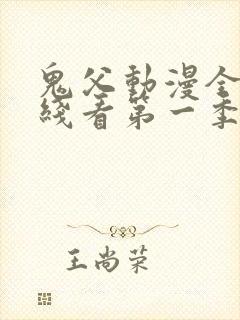 鬼父動漫全
綫看第一季
王尚荣